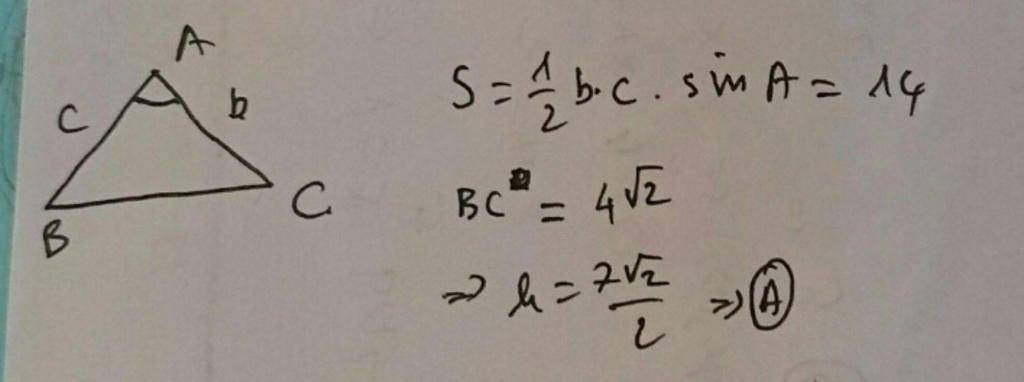 A
c
b
B
C
S = 1/2 b.c. sin A = 14
BC = 4√2
=> h = 7√2/2 => A